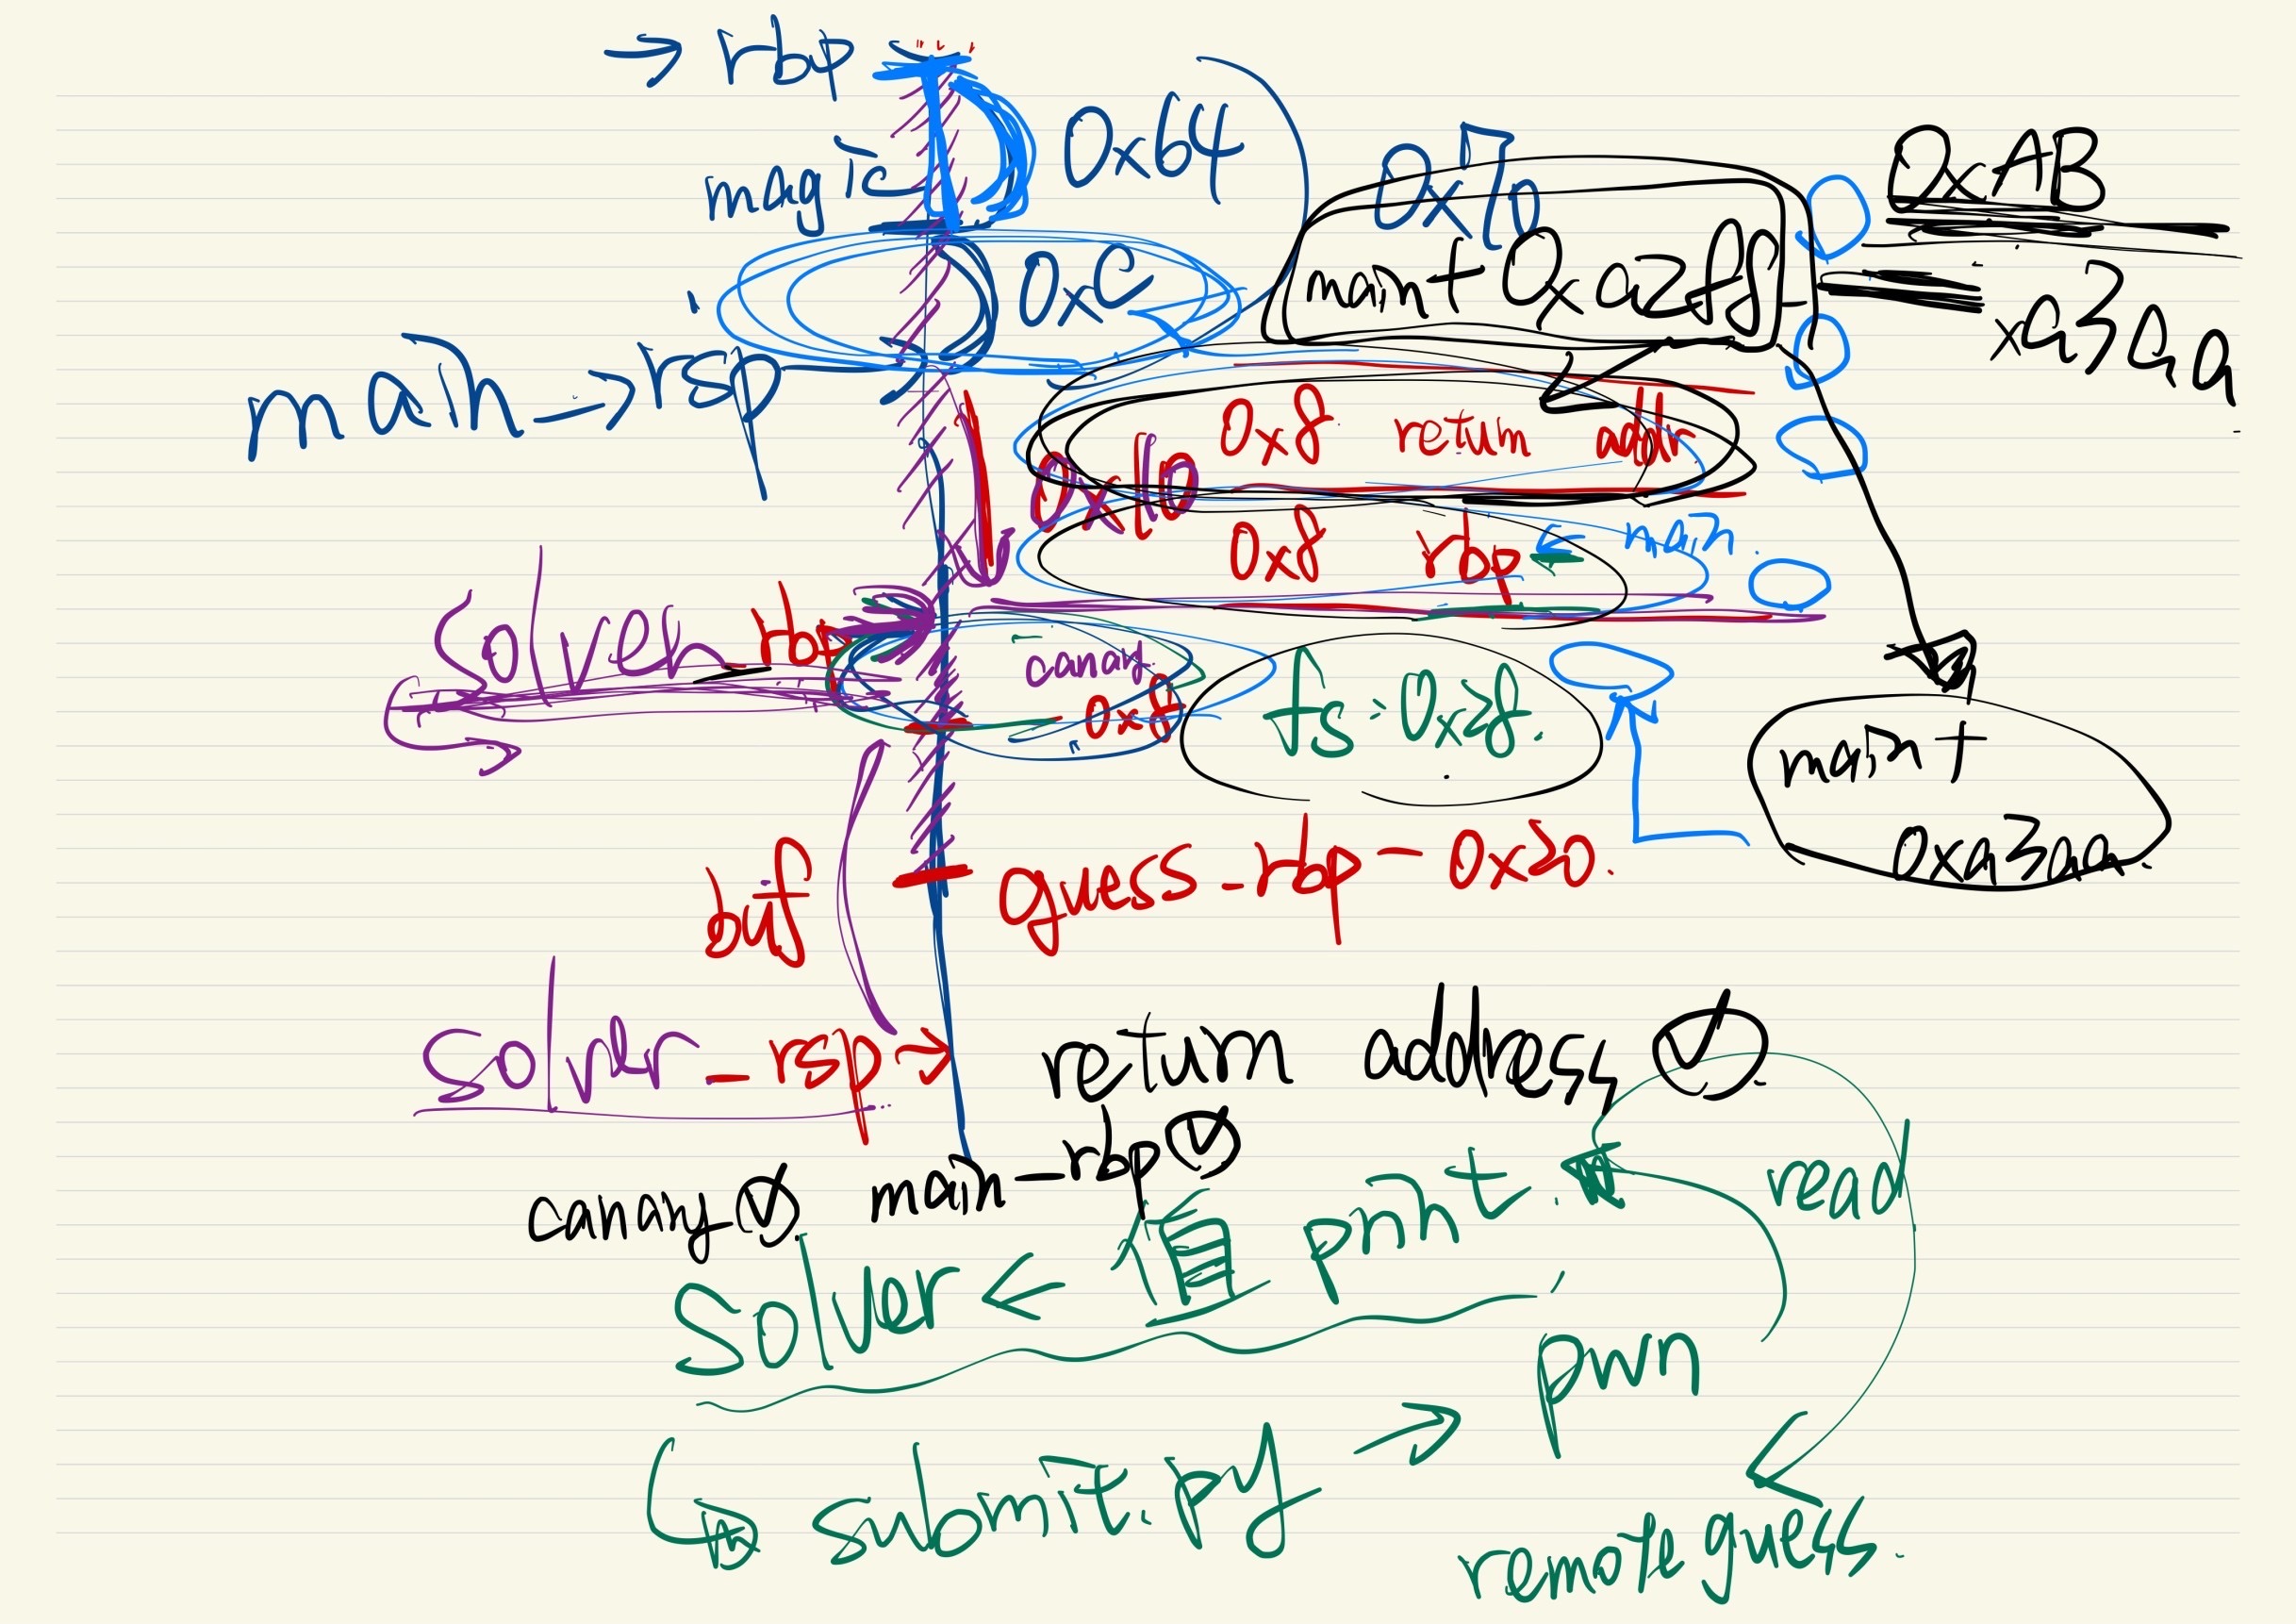 → rbp
magic 0x64
0x70
0xAB
main + 0xa2f8
0xC
xa3aa
main → rsp
0x8 return addr
0x10
0x8 rbp ← main
solver_rbp
canary
0x8
fs:0x28.
main +
0xa3aa
buf guess_rbp-0x30.
solver_rsp → return address
canary main_rbp
solver < 值 print. read
pwn
submit.py →
remote guess.